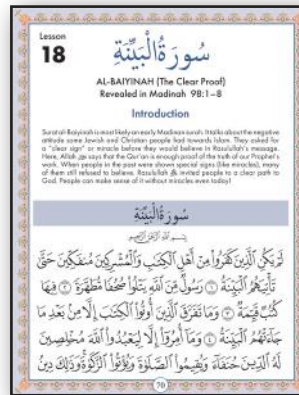 Lesson
18
سُورَةُ الْبَيِّنَةِ
AL-BAIYINAH (The Clear Proof)
Revealed in Madinah 98:1–8
Introduction
Surat al-Baiyinah is most likely an early Madinan surah. It talks about the negative
attitude some Jewish and Christian people had towards Islam. They asked for
a "clear sign" or miracle before they would believe in Rasulullah's message.
Here, Allah ﷻ says that the Qur'an is enough proof of the truth of our Prophet's
work. When people in the past were shown special signs (like miracles), many
of them still refused to believe. Rasulullah ﷺ invited people to a clear path to
God. People can make sense of it without miracles even today!
سُورَةُ الْبَيِّنَةِ
بِسْمِ اللَّهِ الرَّحْمَٰنِ الرَّحِيمِ
لَمْ يَكُنِ الَّذِينَ كَفَرُوا مِنْ أَهْلِ الْكِتَٰبِ وَالْمُشْرِكِينَ مُنفَكِّينَ حَتَّىٰ
تَأْتِيَهُمُ الْبَيِّنَةُ ١ رَسُولٌ مِّنَ اللَّهِ يَتْلُوا صُحُفًا مُّطَهَّرَةً ٢ فِيهَا
كُتُبٌ قَيِّمَةٌ ٣ وَمَا تَفَرَّقَ الَّذِينَ أُوتُوا الْكِتَٰبَ إِلَّا مِنۢ بَعْدِ مَا
جَاءَتْهُمُ الْبَيِّنَةُ ٤ وَمَا أُمِرُوا إِلَّا لِيَعْبُدُوا اللَّهَ مُخْلِصِينَ
لَهُ الدِّينَ حُنَفَاءَ وَيُقِيمُوا الصَّلَوٰةَ وَيُؤْتُوا الزَّكَوٰةَ وَذَٰلِكَ دِينُ
70